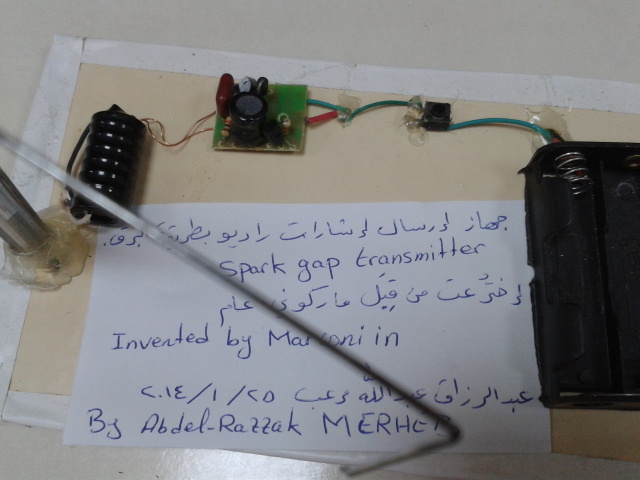 جهاز إرسال إشارات راديو بطريقة برق.
Spark gap transmitter
إخترُعت من قِبَل ماركوني عام
Invented by Marconi in
عبدالرزاق عبدالله مرعب ٢٠١٤/١/٢٥
By Abdel-Razzak MERHEB